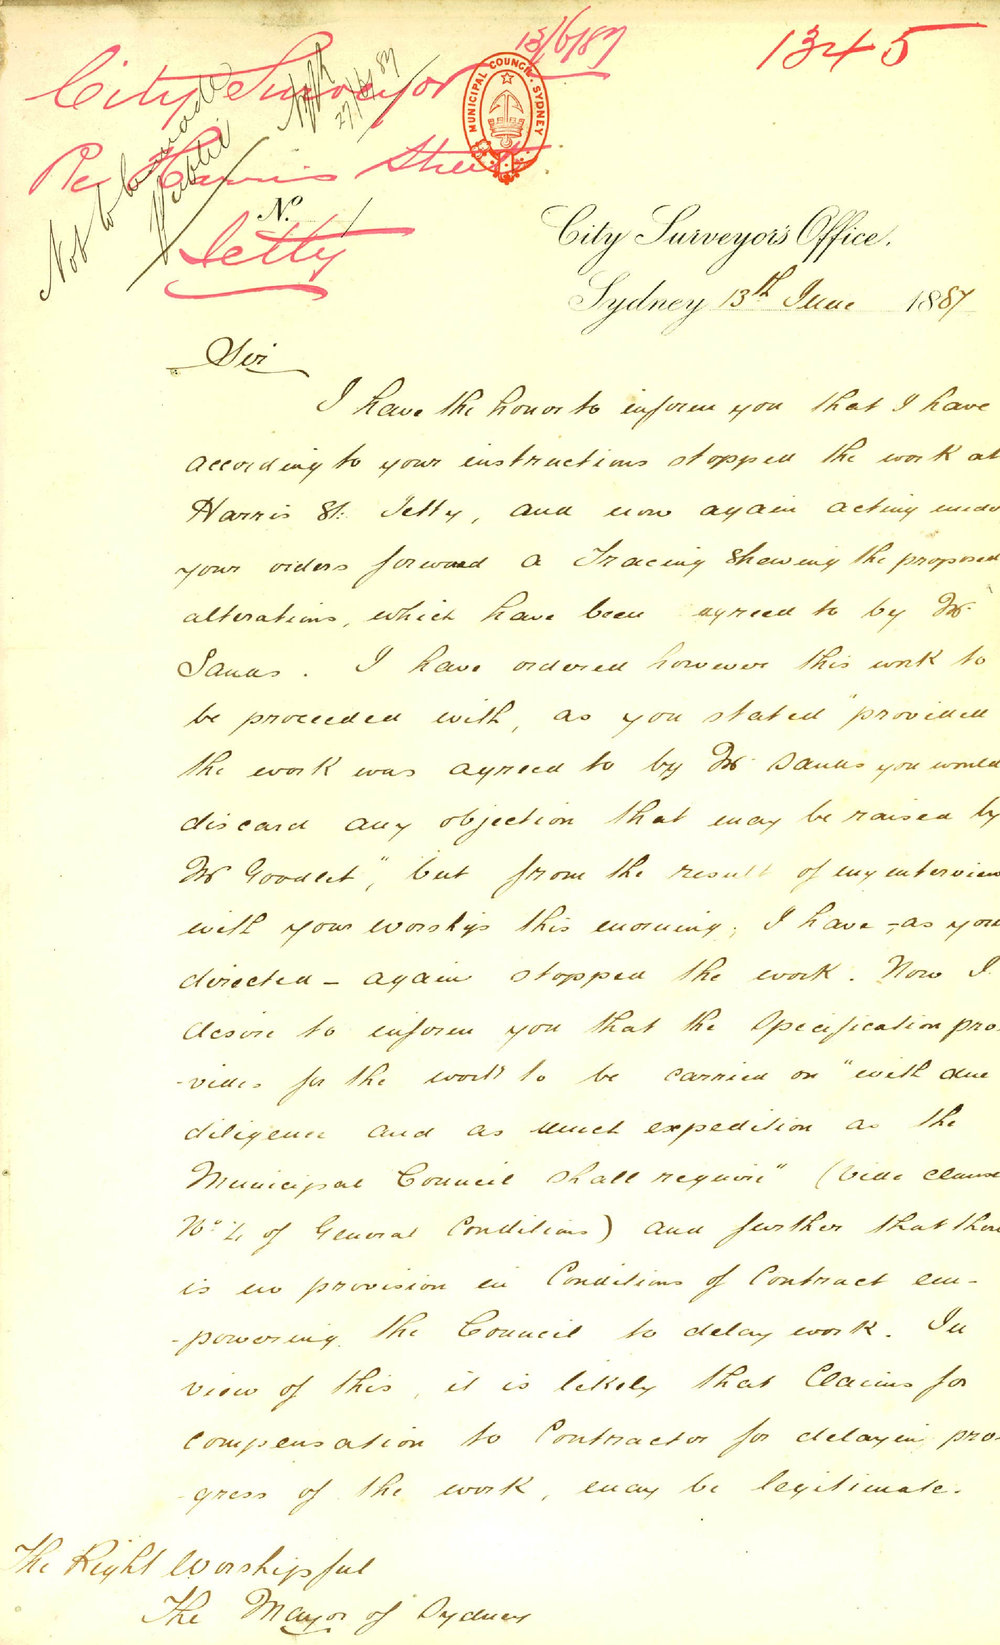 13/6/87
1345
City Surveyor
Re Harris Street
Jetty
Not to be made
Public
27/6/87
MUNICIPAL COUNCIL. SYDNEY
No.
City Surveyor's Office.
Sydney 13th June 1887
Sir
I have the honor to inform you that I have
according to your instructions stopped the work at
Harris St. Jetty, and now again acting under
your orders forward a Tracing Shewing the proposed
alterations, which have been agreed to by Mr.
Sands. I have ordered however this work to
be proceeded with, as you stated "provided
the work was agreed to by Mr Sands you would
discard any objection that may be raised by
Mr Goodlet", but from the result of my interview
with your worship this morning, I have - as you
directed - again stopped the work. Now I
desire to inform you that the Specification pro
-vides for the work to be carried on "with due
diligence and as much expedition as the
Municipal Council shall require" (Vide clause
No 4 of General Conditions) and further that there
is no provision in Conditions of Contract em-
-powering the Council to delay work. In
view of this, it is likely that Claims for
compensation to Contractor for delay in pro-
gress of the work, may be legitimate.
The Right Worshipful
The Mayor of Sydney